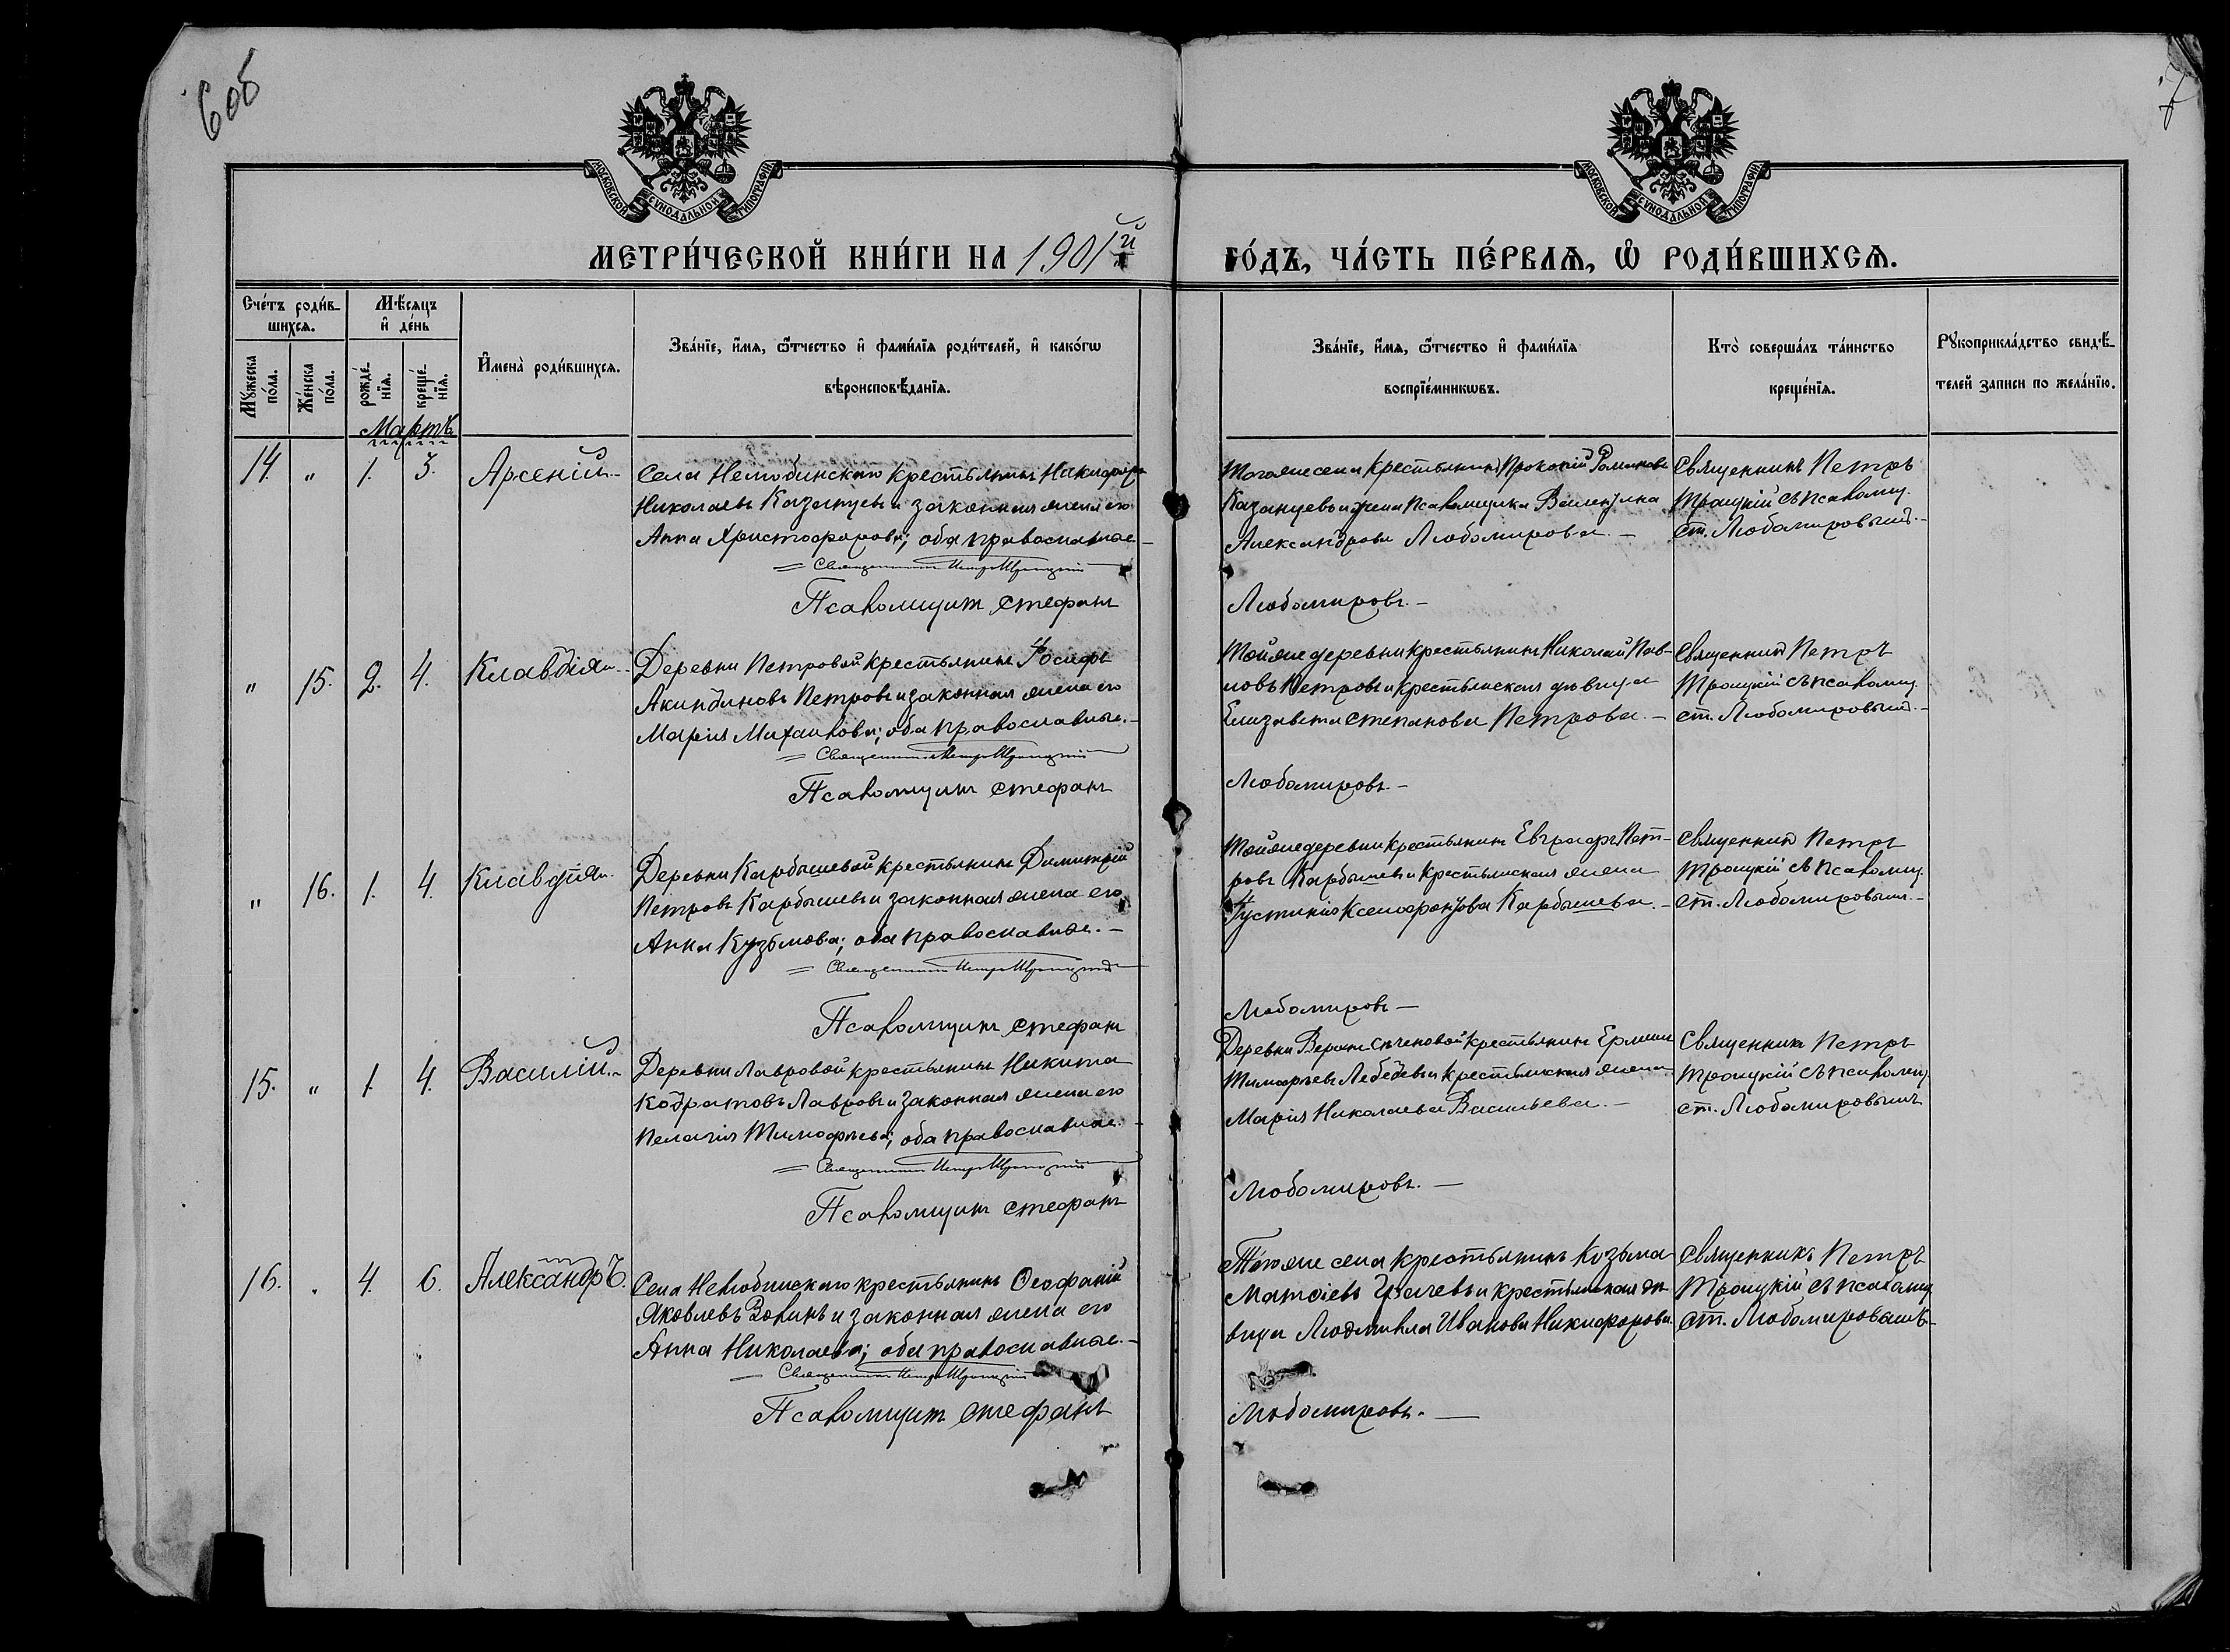 6об
7
МОСКОВСКОЙ СѴНОДАЛЬНОЙ ТИПОГРАФІИ
МОСКОВСКОЙ СѴНОДАЛЬНОЙ ТИПОГРАФІИ
МЕТРИ́ЧЕСКОЙ КНИ́ГИ НА 1901й ГО́ДЪ, ЧА́СТЬ ПЕ́РВАѦ, Ѡ҆ РОДИ́ВШИХСѦ.
Сче́тъ роди́в-
шихсѧ.
Мꙋ́жеска по́ла.
Же́нска по́ла.
Мѣ́сѧцъ
и҆ де́нь
рожде́-
нїѧ.
креще́-
нїѧ.
И҆мена̀ роди́вшихсѧ.
Зва́нїе, и҆́мѧ, ѻ҆́тчество и҆ фами́лїѧ роди́телей, и҆ како́гѡ
вѣроисповѣ́данїѧ.
Зва́нїе, и҆́мѧ, ѻ҆́тчество и҆ фами́лїѧ
воспрїе́мникѡвъ.
Кто̀ соверша́лъ та́инство
креще́нїѧ.
Рꙋкоприкла́дство свидѣ́-
телей записи по жела́нїю.
Мартъ
14. " 1. 3. Арсеній
Села Нелюбинскаго крестьянинъ Никифоръ
Николаевъ Казанцевъ и законная жена его
Анна Христофорова; оба православные.-
Священникъ Петръ Троицкій
Псаломщикъ Стефанъ
Тогоже села крестьянинъ Прокопій Романовъ
Казанцевъ и жена псаломщика Валентина
Александрова Любомирова. -
Любомировъ. -
Священникъ Петръ
Троицкій съ псаломщ.
ст. Любомировымъ. -
" 15. 2. 4. Клавдія
Деревни Петровой крестьянинъ Іосифъ
Акиндиновъ Петровъ и законная жена его
Марія Михаилова; оба православные. -
Священникъ Петръ Троицкій
Псаломщикъ Стефанъ
Тойже деревни крестьянинъ Николай Пав-
ловъ Петровъ и крестьянская дѣвица
Елизавета Степанова Петрова. -
Любомировъ. -
Священникъ Петръ
Троицкій съ псаломщ.
ст. Любомировымъ. -
" 16. 1. 4. Клавдія
Деревни Карбышевой крестьянинъ Димитрій
Петровъ Карбышевъ и законная жена его
Анна Кузьмова; оба православные. -
Священникъ Петръ Троицкій
Псаломщикъ Стефанъ
Тойже деревни крестьянинъ Евграфъ Пет-
ровъ Карбышевъ и крестьянская жена
Іустинія Ксенофонтова Карбышева. -
Любомировъ -
Священникъ Петръ
Троицкій съ псаломщ.
ст. Любомировымъ. -
15. " 1. 4. Василій
Деревни Лавровой крестьянинъ Никита
Кодратовъ Лавровъ и законная жена его
Пелагія Тимофѣева; оба православные. -
Священникъ Петръ Троицкій
Псаломщикъ Стефанъ
Деревни крестьянинъ
Тимофѣевъ Лебедевъ и крестьянская жена
Марія Николаева Васильева. -
Любомировъ. -
Священникъ Петръ
Троицкій съ псаломщ.
ст. Любомировымъ
16. " 4. 6. Александръ.
Села Нелюбинскаго крестьянинъ Ѳеофаній
Яковлевъ и законная жена его
Анна Николаева; оба православные. -
Священникъ Петръ Троицкій
Псаломщикъ Стефанъ
Того же села крестьянинъ Козьма
Матѳіевъ Грачевъ и крестьянская дѣ-
вица Людмила Иванова Никифорова.
Любомировъ. -
Священникъ Петръ
Троицкій съ псаломщ.
ст. Любомировымъ. -